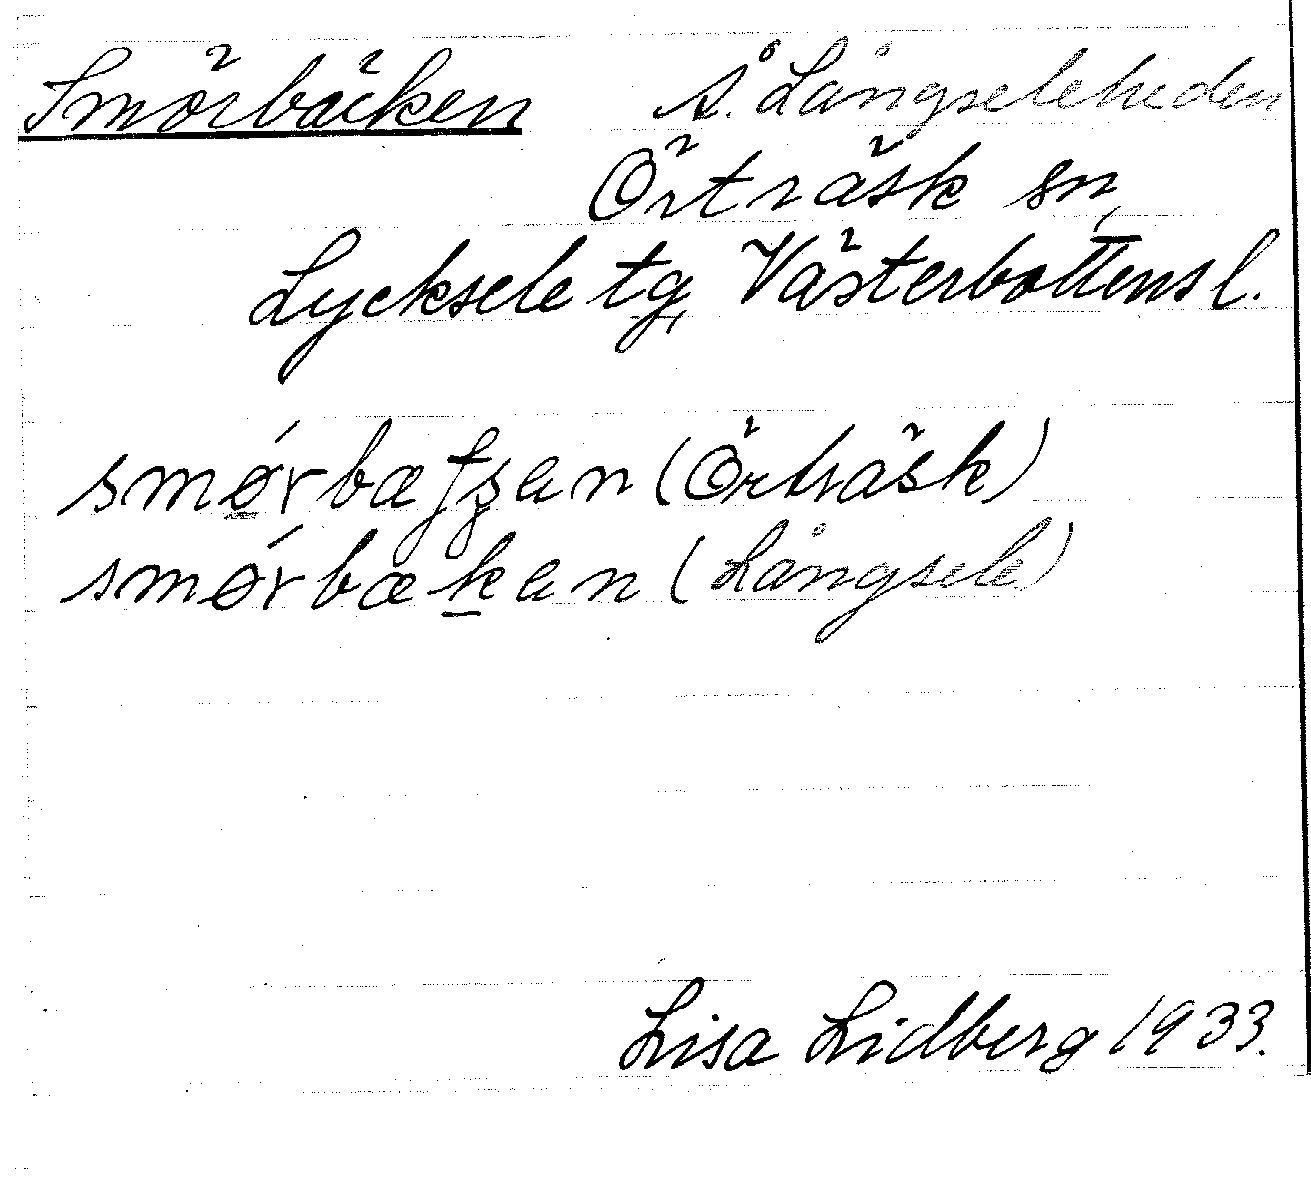 Smörbäcken s. Långseleheden
Örträsk sn,
Lycksele tg, Västerbottens l.
(Örträsk)
smǿrbækan (Långsele)
Lisa Lidberg 1933.